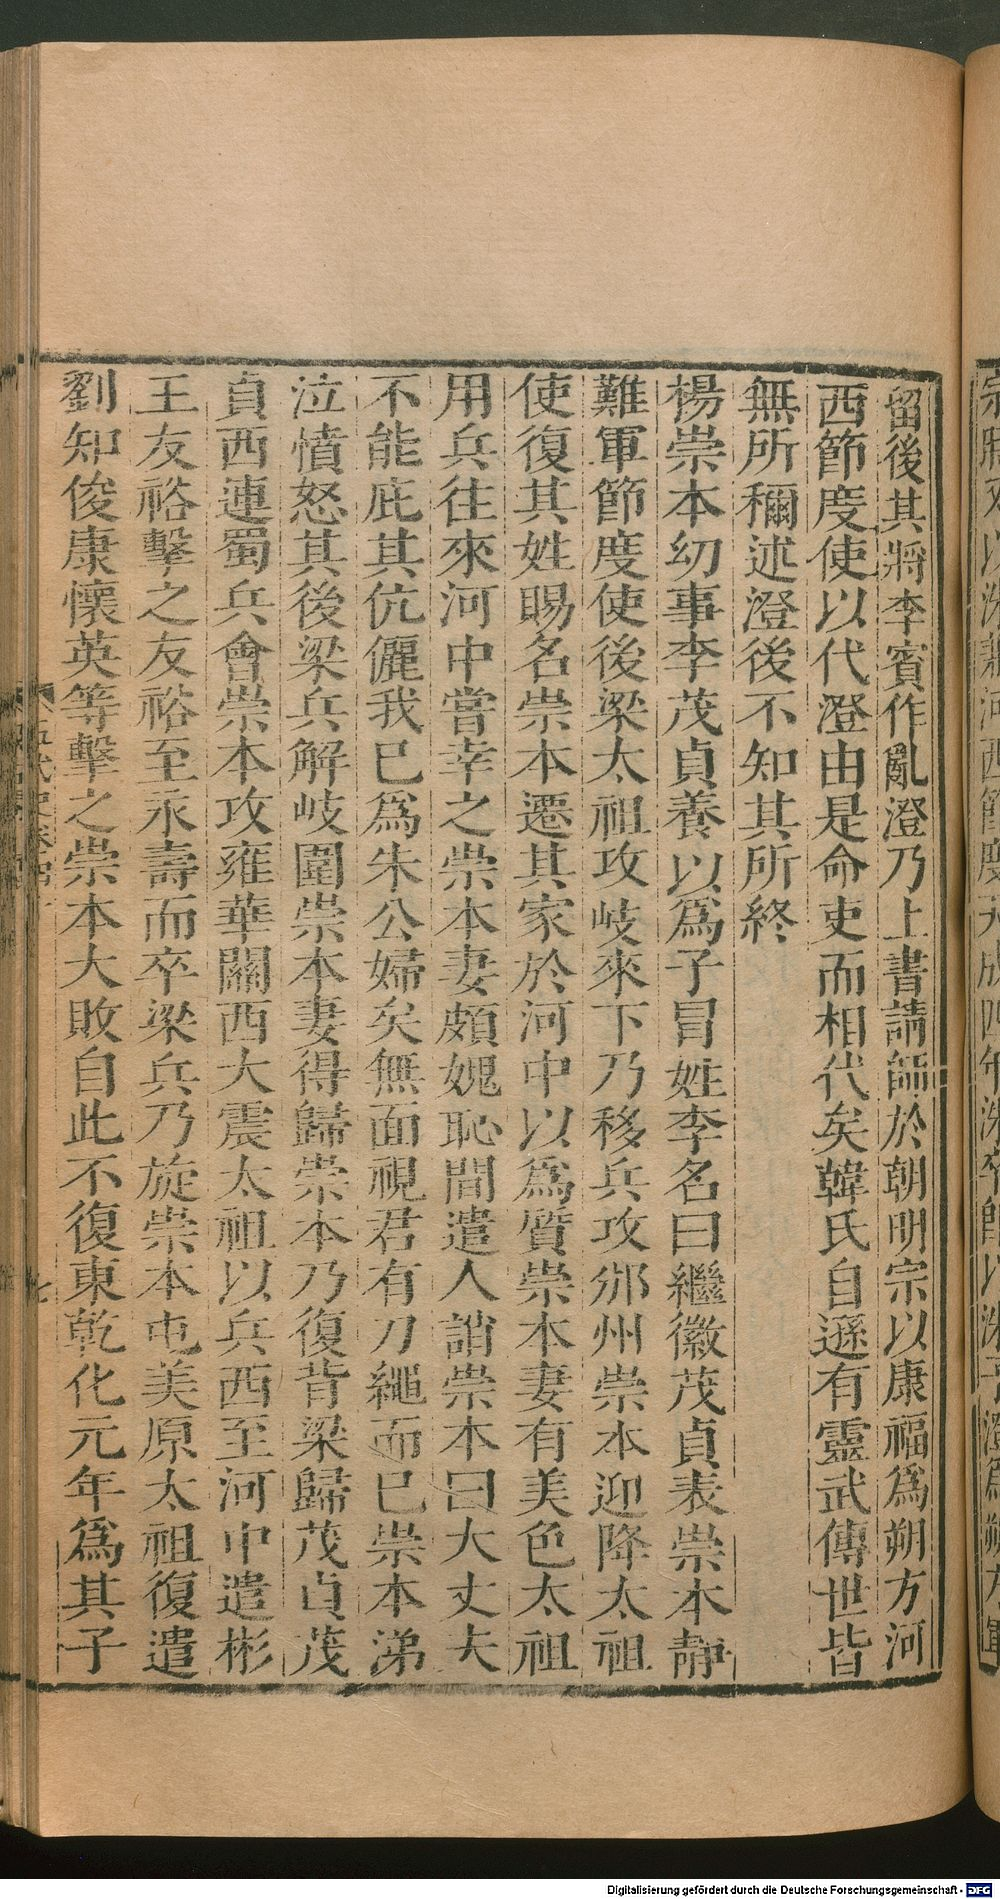 留後其將李賓作亂澄乃上書請師於朝明宗以康福爲朔方河
西節度使以代澄由是命吏而相代矣韓氏自遜有靈武傳世皆
無所稱述澄後不知其所終
楊崇本幼事李茂貞養以爲子冒姓李名曰繼徽茂貞表崇本靜
難軍節度使後梁太祖攻岐來下乃移兵攻邠州崇本迎降太祖
使復其姓賜名崇本遷其家於河中以爲質崇本妻有美色太祖
用兵往來河中嘗幸之崇本妻頗媿恥間遣人誚崇本曰大丈夫
不能庇其伉儷我已爲朱公婦矣無面視君有刀繩而已崇本涕
泣憤怒其後梁兵解岐圍崇本妻得歸崇本乃復背梁歸茂貞茂
貞西連蜀兵會崇本攻雍華關西大震太祖以兵西至河中遣彬
王友裕擊之友裕至永壽而卒梁兵乃旋崇本屯美原太祖復遣
劉知俊康懷英等擊之崇本大敗自此不復東乾化元年爲其子
七
Digitalisierung gefördert durch die Deutsche Forschungsgemeinschaft - DFG